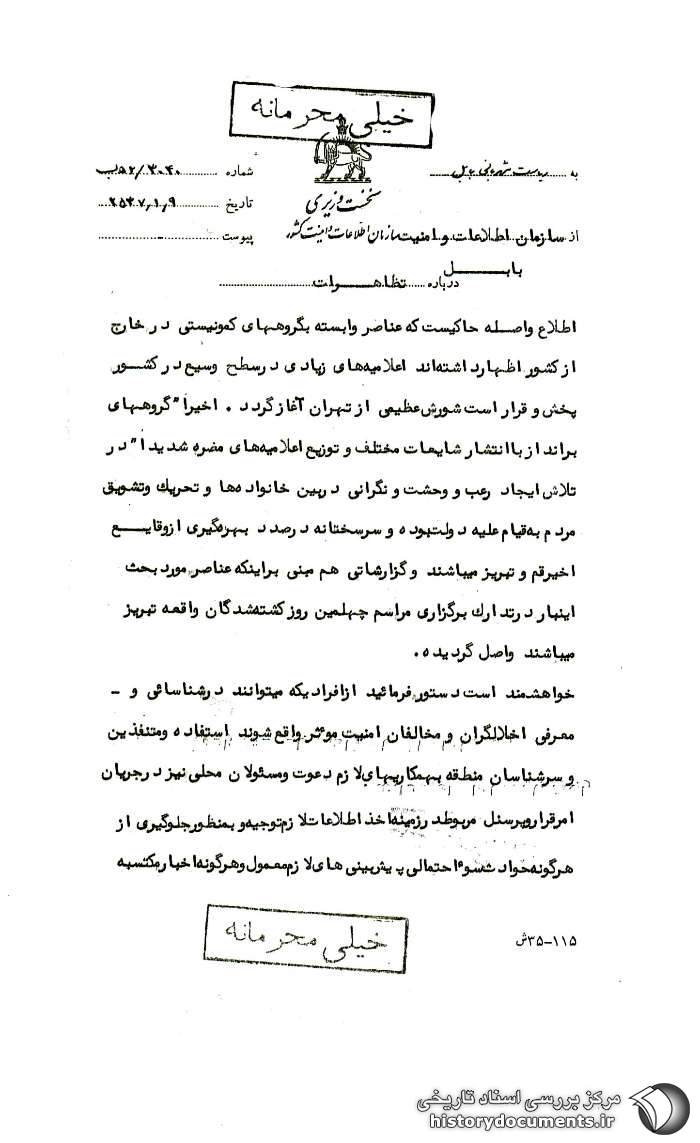 خیلی محرمانه
به ریاست شهربانی بابل
شماره ۳۰۴۰/ ۵۲ب
نخست وزیری
تاریخ ۲۵۳۷/۱/۹
از سازمان اطلاعات و امنیت سازمان اطلاعات و امنیت کشور
پیوست -
بابل
درباره تظاهرات
اطلاع واصله حاکیست که عناصر وابسته بگروههای کمونیستی در خارج
از کشور اظهار داشته‌اند اعلامیه‌های زیادی در سطح وسیع در کشور
پخش و قرار است شورش عظیمی از تهران آغاز گردد . اخیرا" گروههای
برانداز با انتشار شایعات مختلف و توزیع اعلامیه‌های مضره شدیدا" در
تلاش ایجاد رعب و وحشت و نگرانی در بین خانواده‌ها و تحریک وتشویق
مردم به قیام علیه دولت بوده و سرسختانه درصدد بهره‌گیری از وقایع
اخیر قم و تبریز میباشند و گزارشاتی هم مبنی بر اینکه عناصر مورد بحث
اینبار در تدارک برگزاری مراسم چهلمین روز کشته شدگان واقعه تبریز
میباشند واصل گردیده .
خواهشمند است دستور فرمائید از افرادیکه میتوانند در شناسائی و -
معرفی اخلالگران و مخالفان امنیت موثر واقع شوند استفاده ومتنفذین
و سرشناسان منطقه بهمکاریهای لازم دعوت ومسئولان محلی نیز در جریان
امر قرار وپرسنل مربوطه در زمینه اخذ اطلاعات لازم توجیه و بمنظور جلوگیری از
هرگونه حوادث سوء احتمالی پیش‌بینی های لازم معمول و هرگونه اخبار مکتسبه
خیلی محرمانه
۱۱۵-۳۵ش
مرکز بررسی اسناد تاریخی
historydocuments.ir